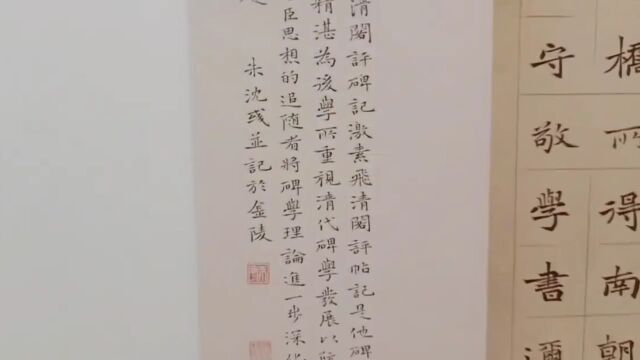 橋所得南朝
守敬學書邇
清閣評碑記激素飛清閣評帖記是他碑
精湛為後學所重視清代碑學發展以
臣思想的追随者將碑學理論進一步深
朱沈彧並記於金陵